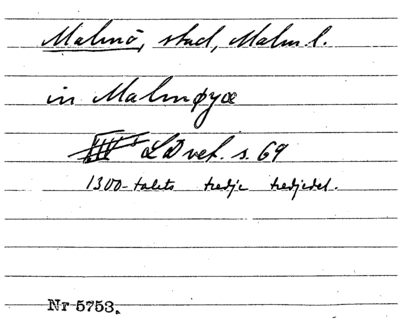 Malmö, stad, Malm l.
in Malmøyæ
LDvet. s. 69
1300-talets tredje tredjedel.
Nr 5753.